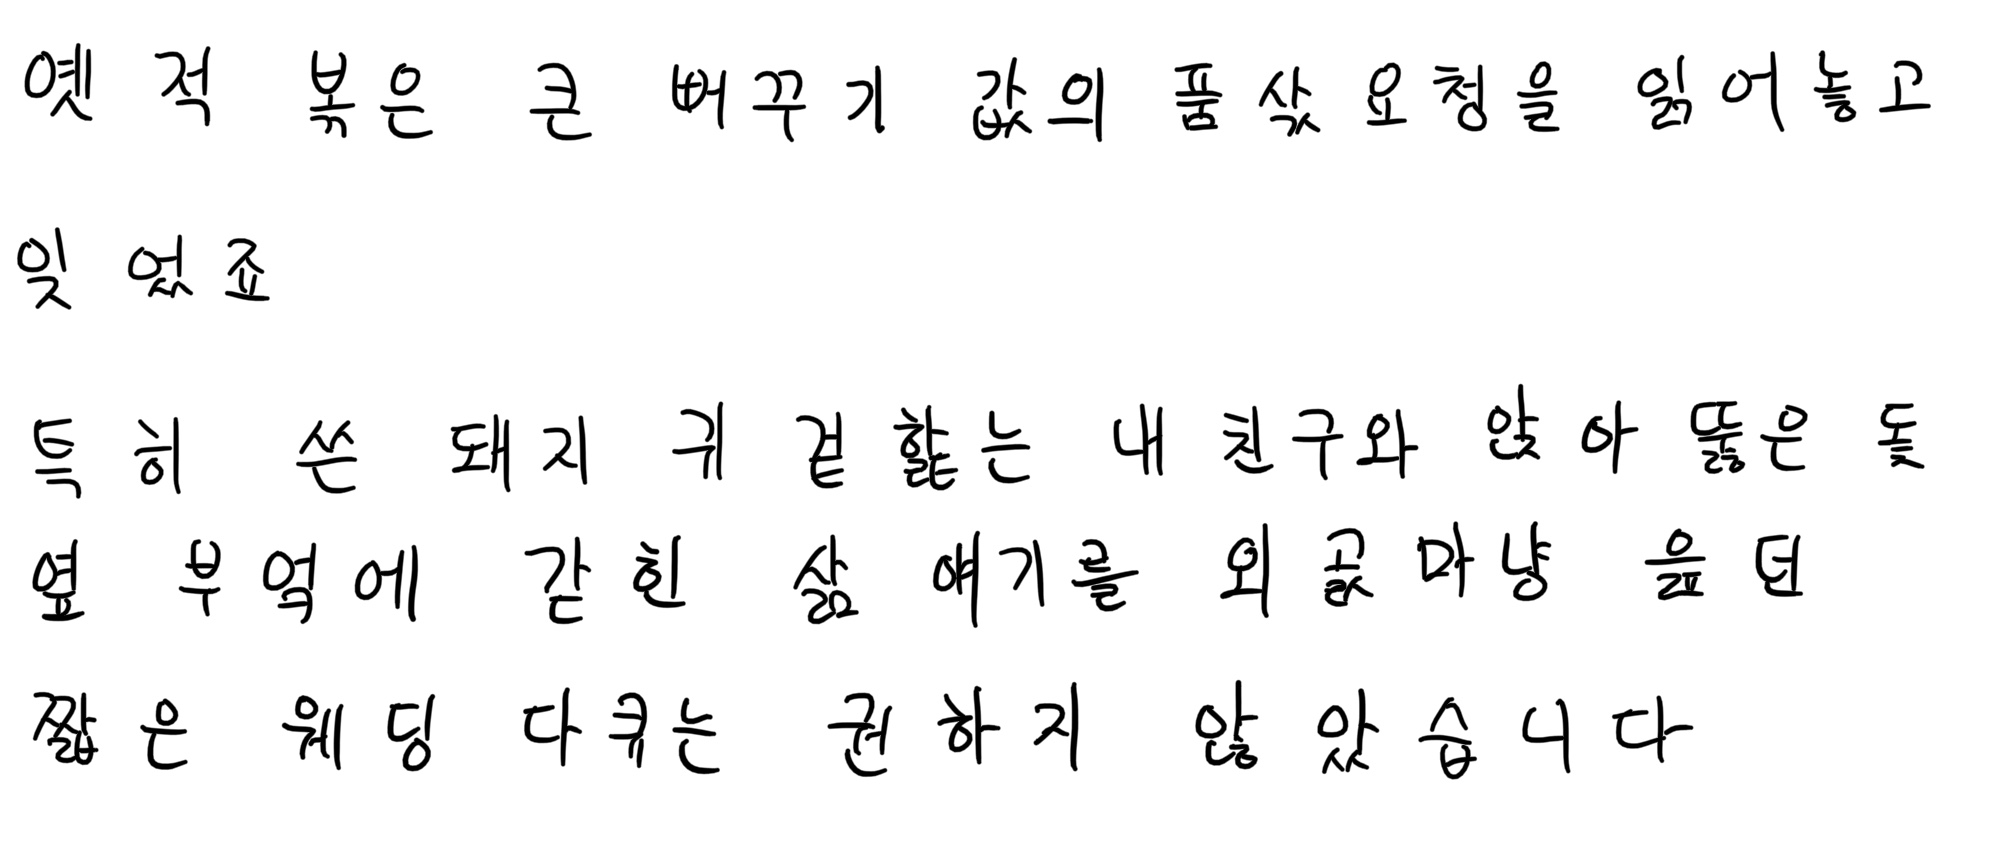 옛적 볶은 큰 뻐꾸기 값의 품삯요청을 읽어놓고
잊었죠
특히 쓴 돼지 귀 겉핥는 내 친구와 앉아 뚫은 돛
옆 부엌에 갇힌 삶 얘기를 외곬마냥 읊던
짧은 웨딩 다큐는 권하지 않았습니다